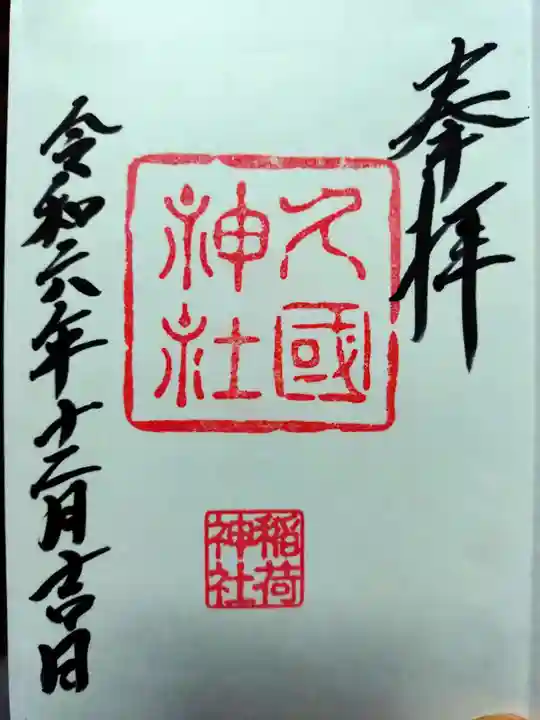 奉拝
久國
神社
稲荷
神社
令和六年十二月吉日